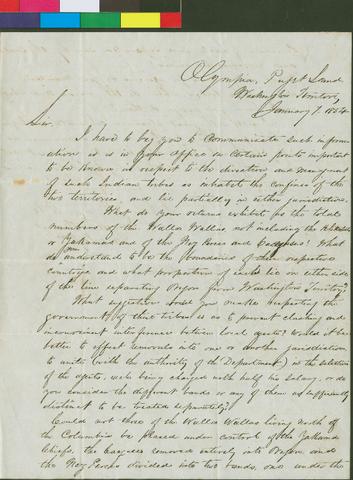 Olympia, Puget Sound
Washington Territory,
January 7. 1854
Sir,
I have to beg you to communicate such inform-
ation as is in your office on certain points important
to be known in respect to the direction and management
of such Indian tribes as inhabit the confines of the
two territories, and lie partially in either jurisdiction.
What do your returns exhibit as the total
numbers of the Walla Wallas not including the
or Yakamas and of the Nez Perces and Cayuses? What
do you understand to be the boundaries of their respective
countries and what proportion of each lie on either side
of the line separating Oregon from Washington Territory?
What suggestion would you make respecting the
government of these tribes so as to prevent clashing and
inconvenient interference between local agents? Would it be
better to effect removals into one or another jurisdiction
to unite (with the authority of the Department) in the selection
of the agents, each being charged with half his salary, or do
you consider the different bands or any of them as sufficiently
distinct to be treated separately?
Could not those of the Walla Wallas living north of
the Columbia be placed under control of the Yakama
Chiefs, the Cayuses removed entirely into Oregon and
the Nez Perces divided into two bands, one under the